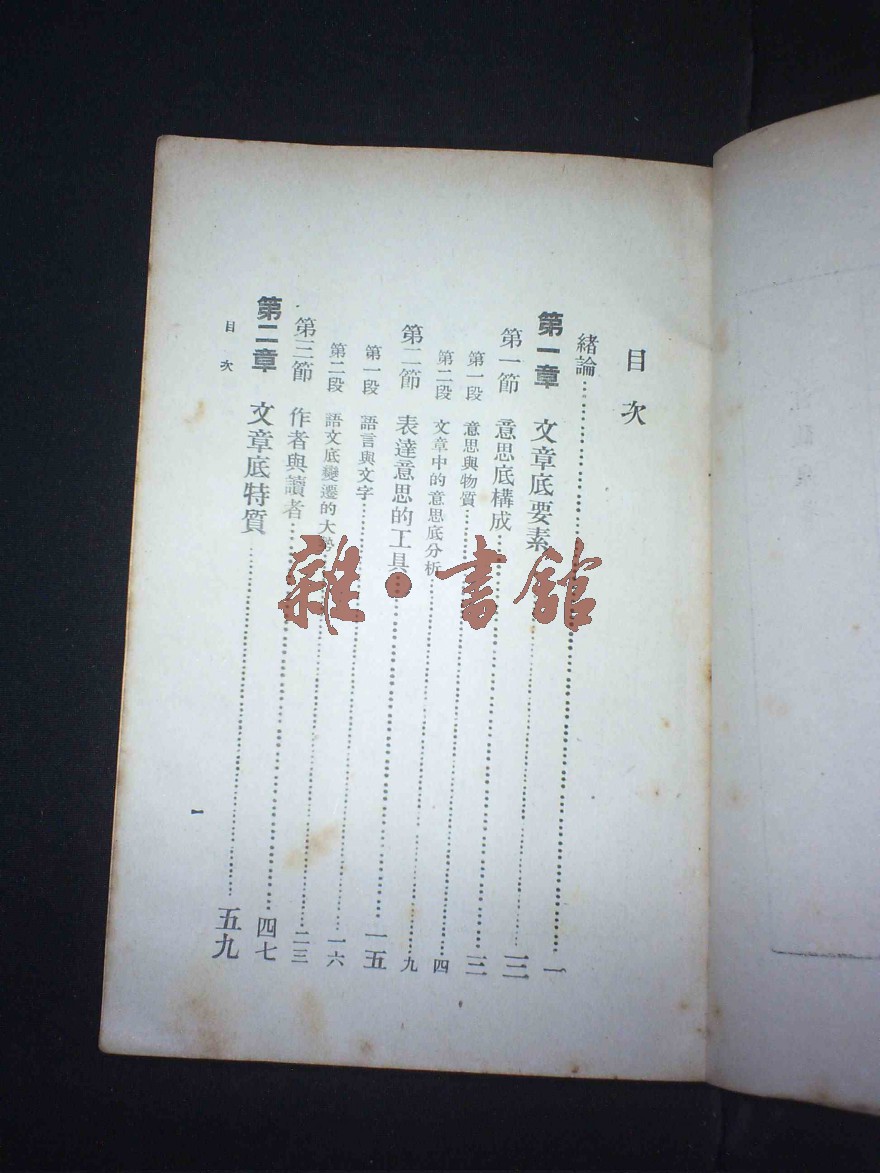 目次
緒論⋯⋯一
第一章 文章底要素⋯⋯三
第一節 意思底構成⋯⋯三
第一段 意思與物質⋯⋯四
第二段 文章中的意思底分析⋯⋯九
第二節 表達意思的工具⋯⋯一五
第一段 語言與文字⋯⋯一六
第二段 語文底變遷的大勢⋯⋯二三
第三節 作者與讀者⋯⋯四七
第二章 文章底特質⋯⋯五九
目次
一
雜·書館